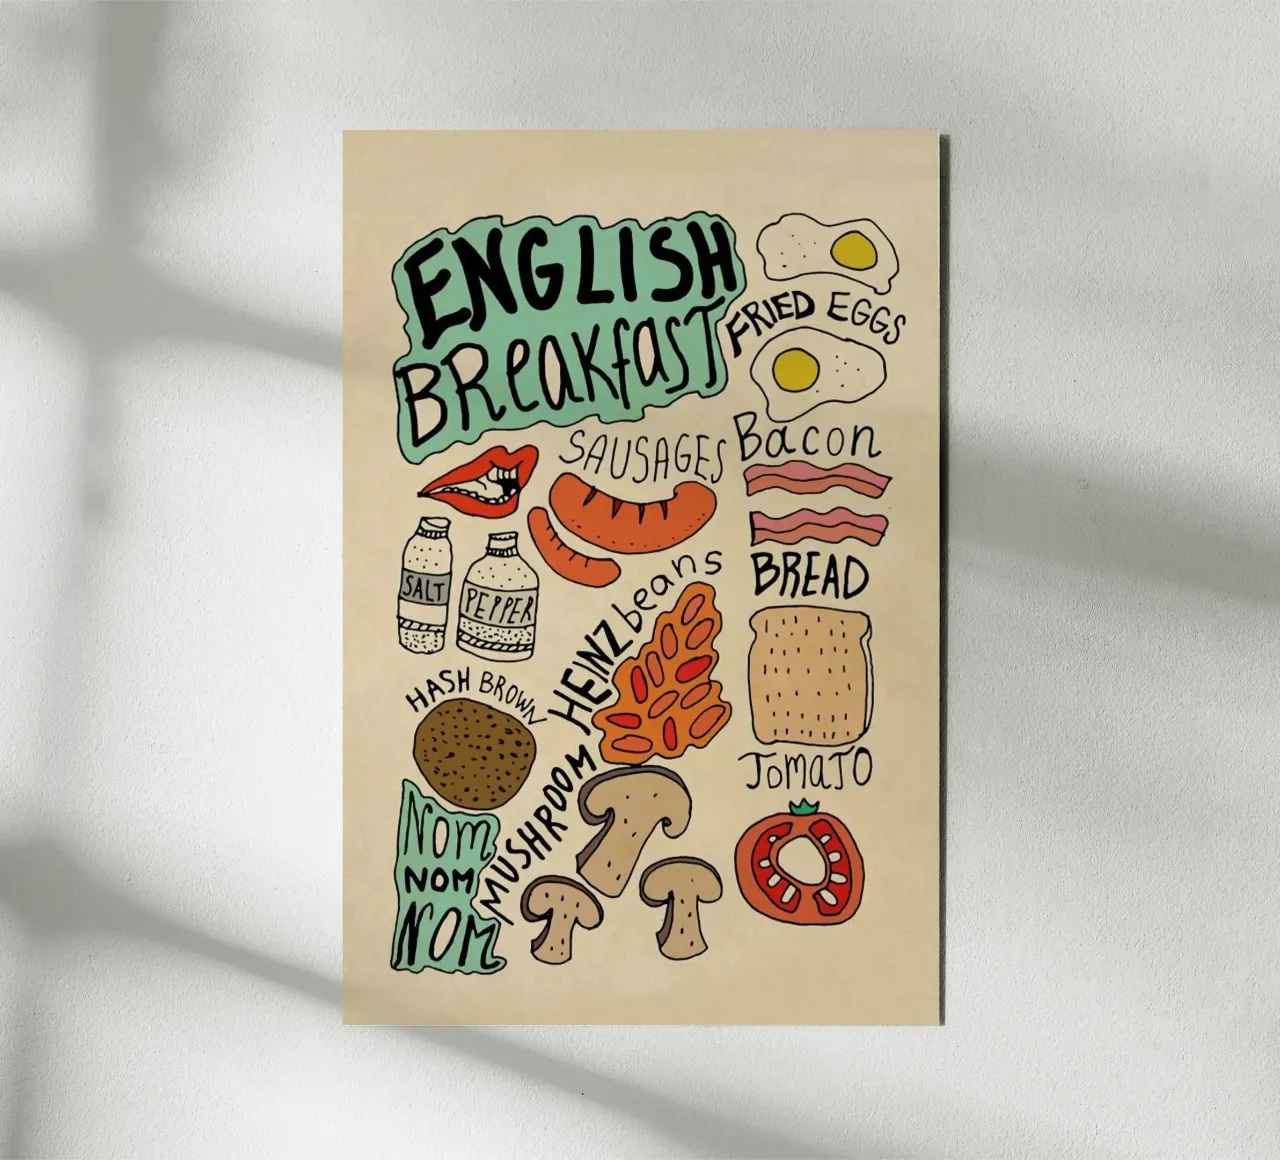 ENGLISH
Breakfast
FRIED EGGS
SAUSAGES
Bacon
SALT
PEPPER
HEINZ beans
BREAD
HASH BROWN
MUSHROOM
TOMATO
Nom
NOM
NOM